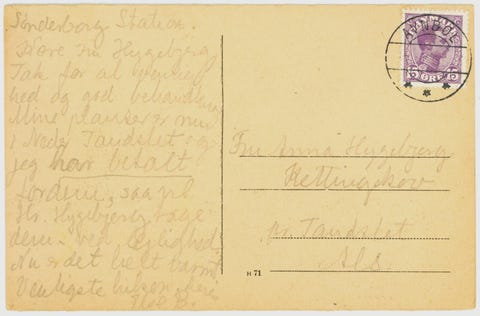 Sønderborg Station.
Kære Fru Hyggebjerg
Tak for al venlig-
hed og god behandling
Mine planter er nu
i Nørre Tandslet og
jeg har betalt
for dem, saa at
Hr. Hyggebjerg
dem ved Lejlighed
Nu er det helt varmt
Venligste hilsen
AVNBØL
15 ØRE 15
Fru Anna Hyggebjerg
Kettingskov
pr. Tandslet
Als
H 71